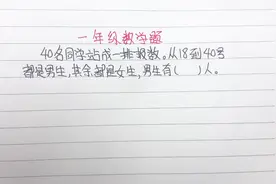 一年级数学题
40名同学站成一排报数。从18到40号
都是男生,其余都是女生,男生有( )人。